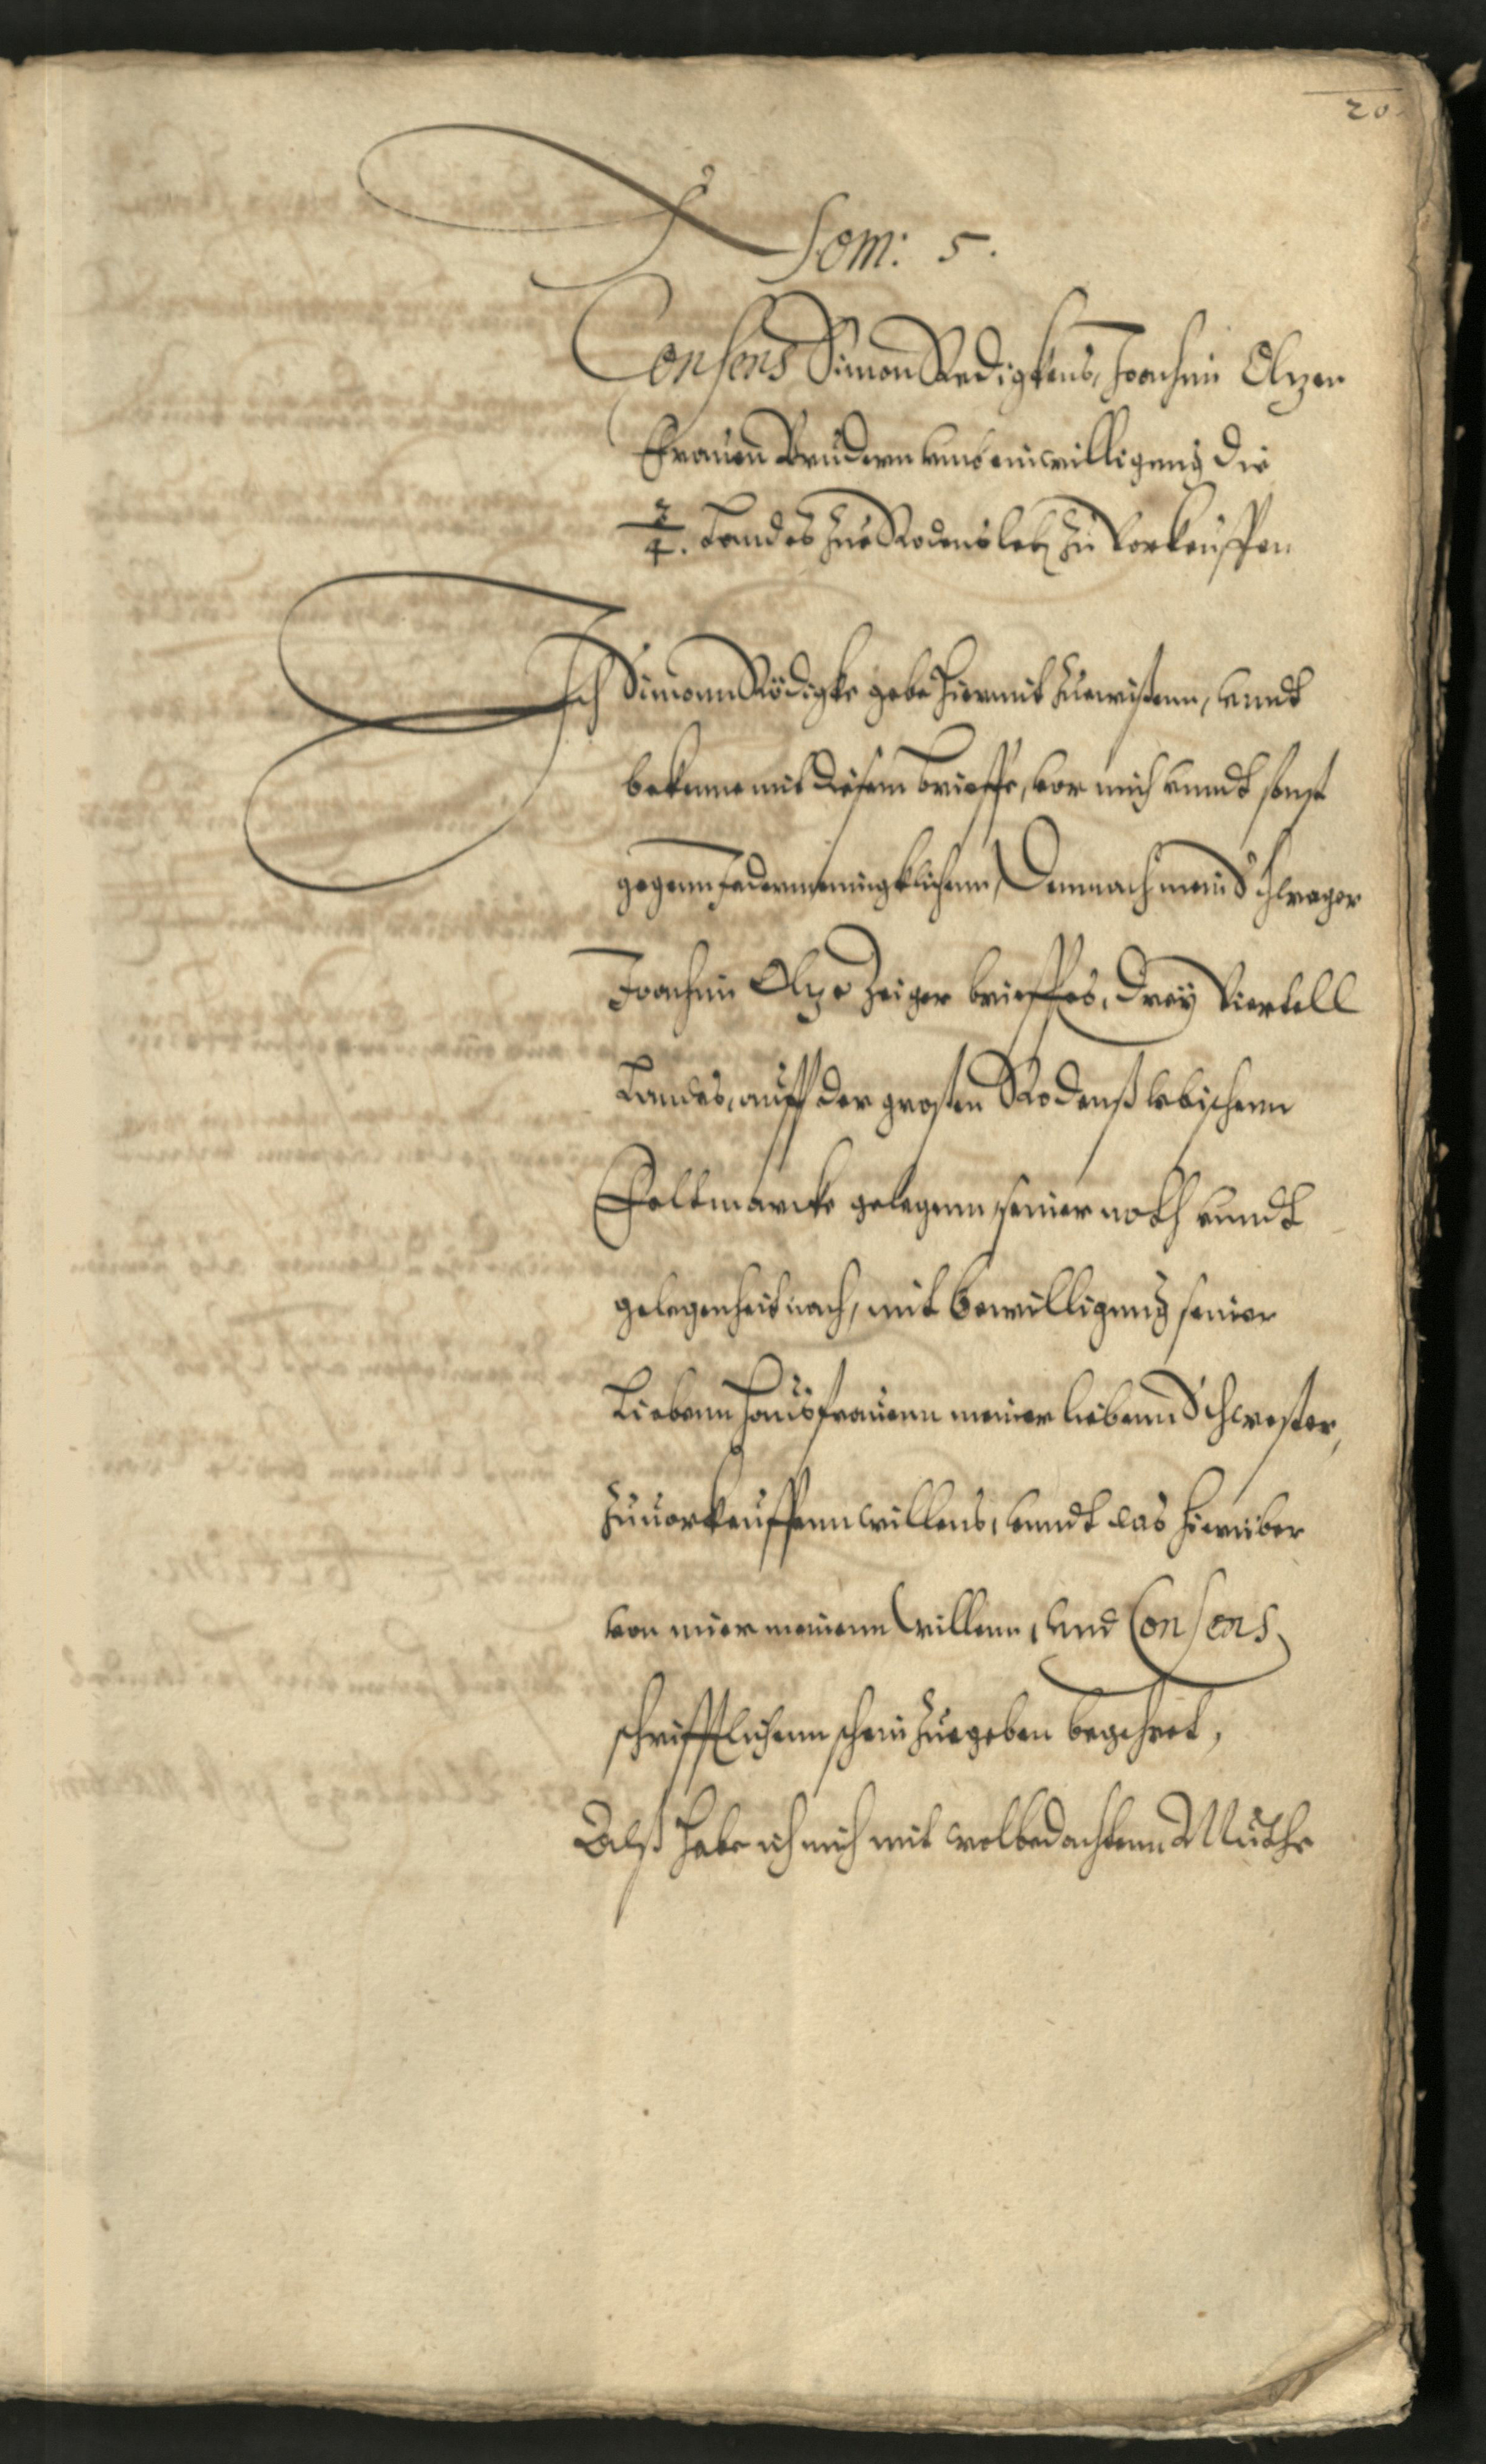 20.
Som: 5.
Consens Simon Redigkens, Joachim Olzen
Frauen Brudern unb einwilligung die
3/4. Landes zue Rodensleb zu Vorkeuffen
Ich Simonn Rödigke gebe hiermit zuewißenn, vnndt
bekenne mit diesem brieffe, vor mich vnndt sonst
gegenn Jedermenningklichenn, Demnach mein Schwager
Joachim Olze Zeiger brieffes, drey Viertell
Landes, auff der großen Rodenßlebischenn
Feltmarcke gelegenn, seiner noth vnndt
gelegenheit nach, mit bewilligung seiner
Liebenn Hausfrauenn meiner liebenn Schwester,
zuuorkeuffenn willens, vnndt das hieruber
von mier meinenn Willenn, vnd Consens
schrifftlichenn schein zuegeben begehret,
Alß habe ich mich mit wolbedachtenn Muthe